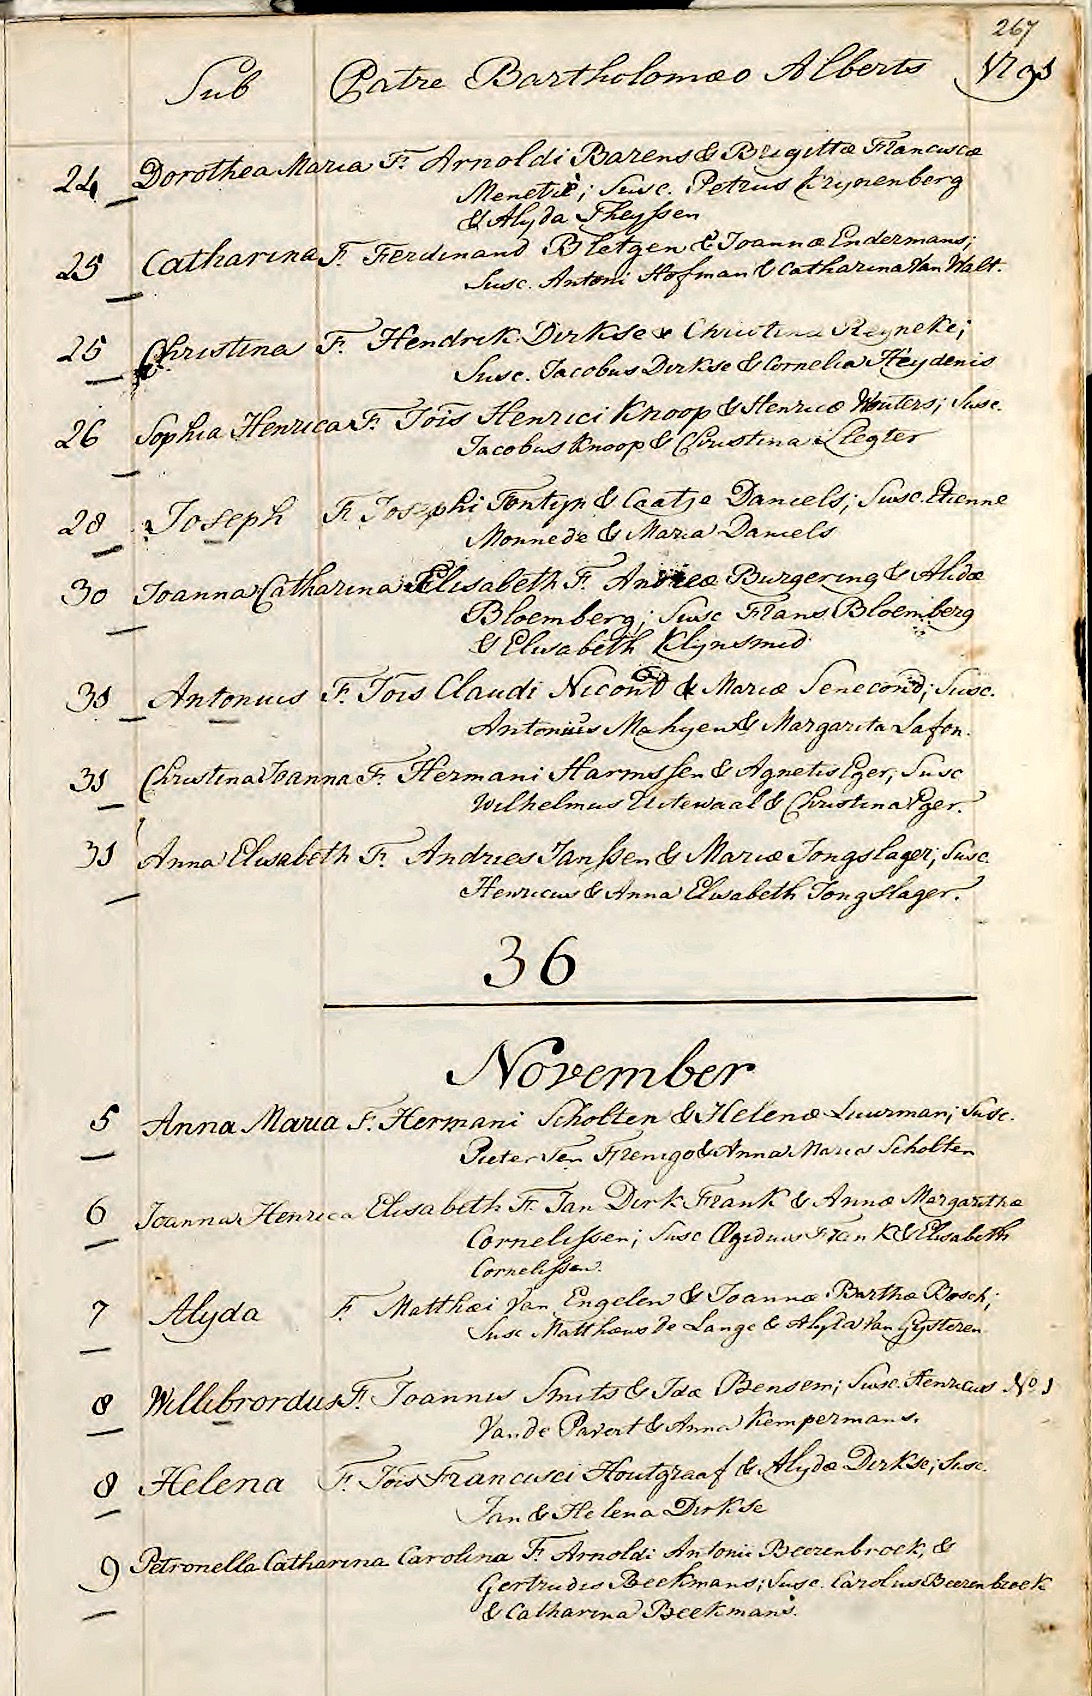 267
Sub Patre Bartholomæo Alberts 1791
24 Dorothea Maria F. Arnoldi Barens & Brigittæ Franciscæ
Menetré; Susc. Petrus Krynenberg
& Alyda Theyssen
25 Catharina F. Ferdinand Bletgen & Joannæ Endermans;
Susc. Antoni Hofman & Catharina Van Walt.
25 Christina F. Hendrik Dirkse & Christina Reyneke;
Susc. Jacobus Dirkse & Cornelia Heydenis
26 Sophia Henrica F. Jois Henrici Knoop & Henricæ Wouters; Susc.
Jacobus Knoop & Christina Slegter
28 Joseph F. Josephi Fontyn & Caatje Daniels; Susc. Etienne
Monnede & Maria Daniels
30 Joanna Catharina Elisabeth F. Andreæ Burgering & Alidæ
Bloemberg; Susc Frans Bloemberg
& Elisabeth Klynsmid
31 Antonius F. Jois Claudi Nicond & Mariæ Senecond; Susc.
Antonius Mahyeu & Margarita Lafon.
31 Christina Joanna F. Hermani Harmssen & Agnetis Eger; Susc
Wilhelmus Uitewaal & Christina Eger.
31 Anna Elisabeth F. Andries Janssen & Mariæ Jongslager; Susc.
Henricus & Anna Elisabeth Jongslager.
36
November
5 Anna Maria F. Hermani Scholten & Helenæ Luurman; Susc.
Pieter Anna Maria Scholten
6 Joanna Henrica Elisabeth F. Jan Dirk Frank & Annæ Margarithæ
Cornelissen; Susc Ægidius Frank & Elisabeth
Cornelissen.
7 Alyda F. Matthæi Van Engelen & Joannæ Barthæ Bosch;
Susc Matthæus de Lange & Alyda Van Gysteren
8 Willibrordus F. Joannis Smits & Idæ Bensem; Susc. Henricus No 1
Van de Pavert & Anna Kempermans.
8 Helena F. Jois Francisci Houtgraaf & Alydæ Dirkse; Susc.
Jan & Helena Dirkse
9 Petronella Catharina Carolina F. Arnoldi Antonii Beerenbroek, &
Gertrudis Beekmans; Susc. Carolus Beerenbroek
& Catharina Beekmans.